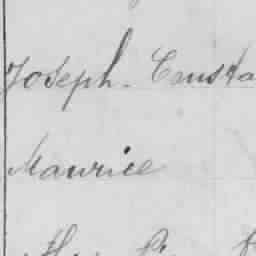 Joseph. Consta
Maurice